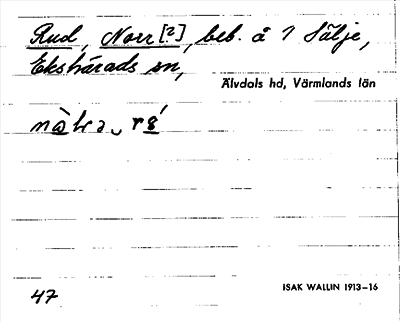 Rud, Norr [2], beb. å 1 Sälje,
Ekshärads sn,
Älvdals hd, Värmlands län
47
ISAK WALLIN 1913–16